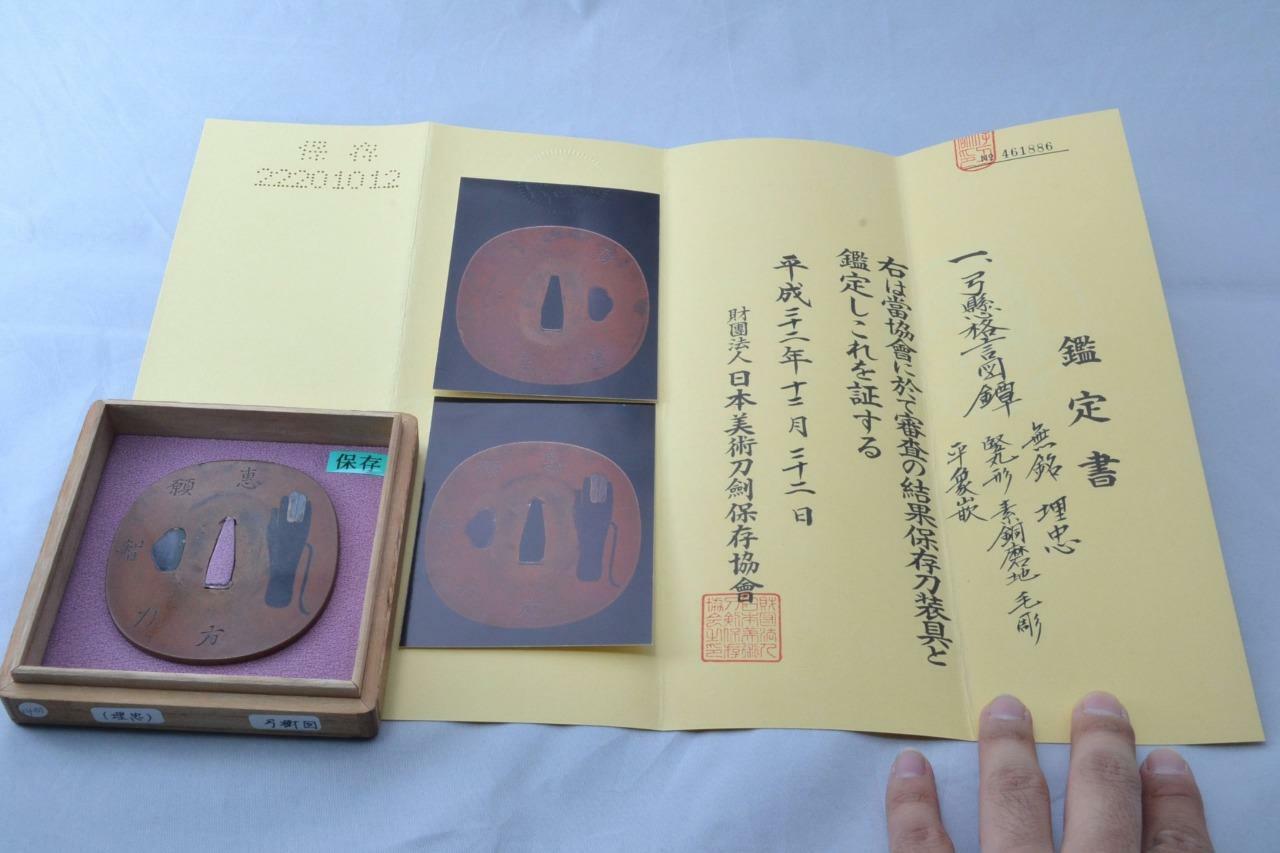 保存
22201012
№ 461886
鑑定書
一、弓懸格言図鐔
無銘 埋忠
竪丸形 素銅磨地 毛彫
平象嵌
右は當協會に於て審査の結果保存刀装具と
鑑定しこれを証する
平成二十二年十二月二十二日
財團法人 日本美術刀劍保存協會
保存
惠
願
智
力
方
(埋忠)